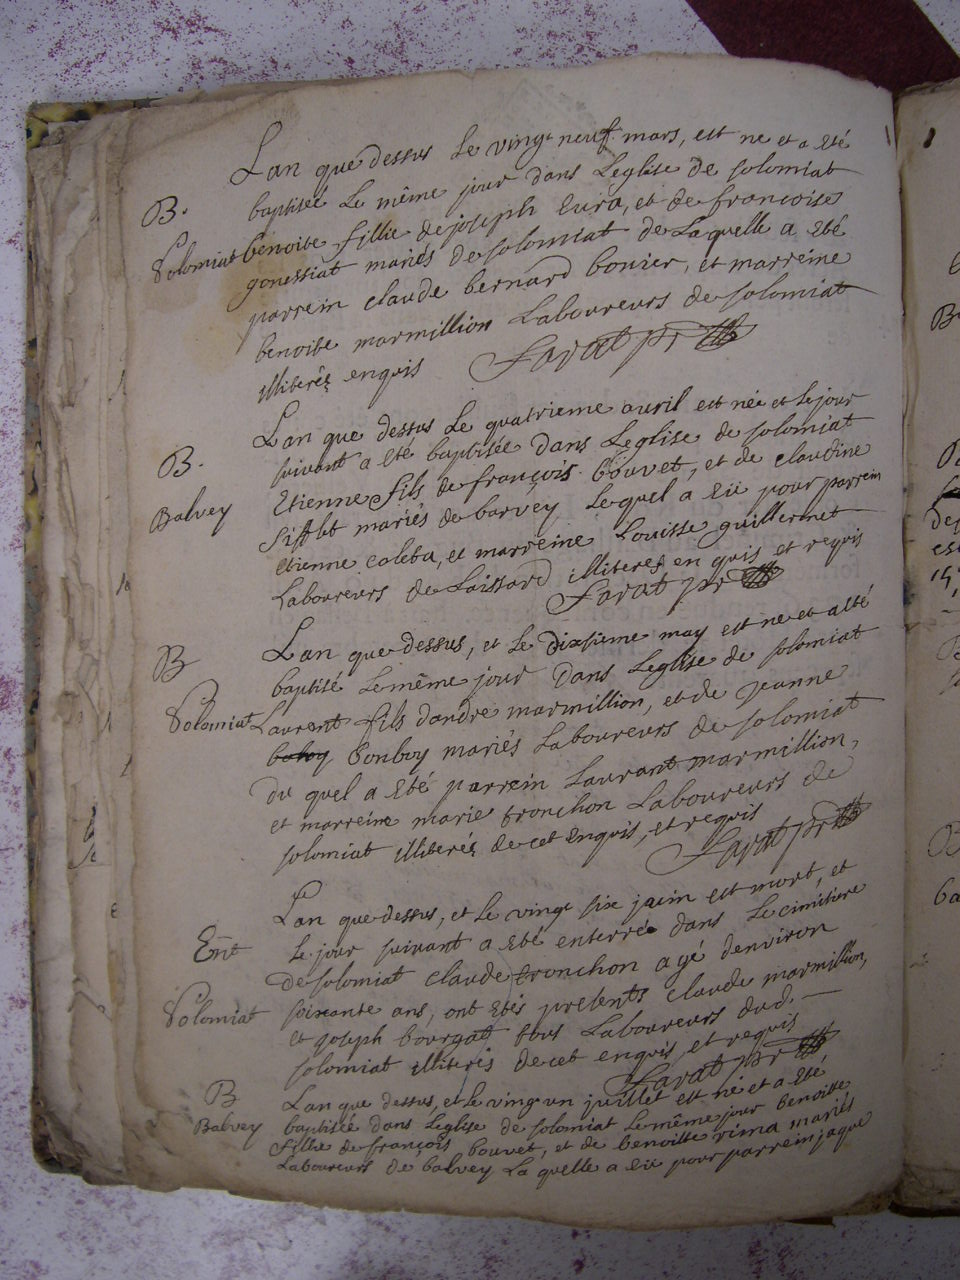 Lan que dessus Le vingt neuf mars, est ne et a Eté
B. baptisée Le même jour dans Leglise de solomiat
Solomiat benoite fillie de joseph Eura, et de francoise
gonessiat mariés de solomiat de Laquelle a Eté
parrein claude bernard bonier, et marreine
benoite marmillion Laboureurs de solomiat
illiterés enquis Savat ptr
Lan que dessus Le quatrieme auril est née et le jour
B. suivant a Eté baptisée dans Leglise de solomiat
Balvey Etienne fils de françois bouvet, et de claudine
mariés de barvey Lequel a Eü pour parrein
etienne coleta, et marreine Louisse guillermet
Laboureurs de Laissard illiteres en quis et requis
Savat ptr
Lan que dessus, et Le dixsieme may est ne et a Eté
B baptisé Le même jour dans Leglise de solomiat
Solomiat Laurent fils dandré marmillion, et de jeanne
bonboy mariés Laboureurs de solomiat
du quel a Eté parrein Laurant marmillion,
et marreine marie tronchon Laboureurs de
solomiat illiterés de cet Enquis, et requis
Savat ptr
Lan que dessus, et Le vingt six juin est mort, et
Ent Le jour suivant a Eté enterré dans Le cimitiere
de solomiat claude tronchon agé denviron
Solomiat soixante ans, ont Etés presents claude marmillion,
et joseph bourgat tous Laboureurs dud.
solomiat illiterés de cet enquis et requis
Savat ptr
B Lan que dessus, et Le vingt un juillet est né et a Eté
Balvey baptisée dans Leglise de solomiat Le même jour benoitte
fillie de françois bouvet, et de benoitte rima mariés
Laboureurs de balvey La quelle a Eü pour parrein jaque